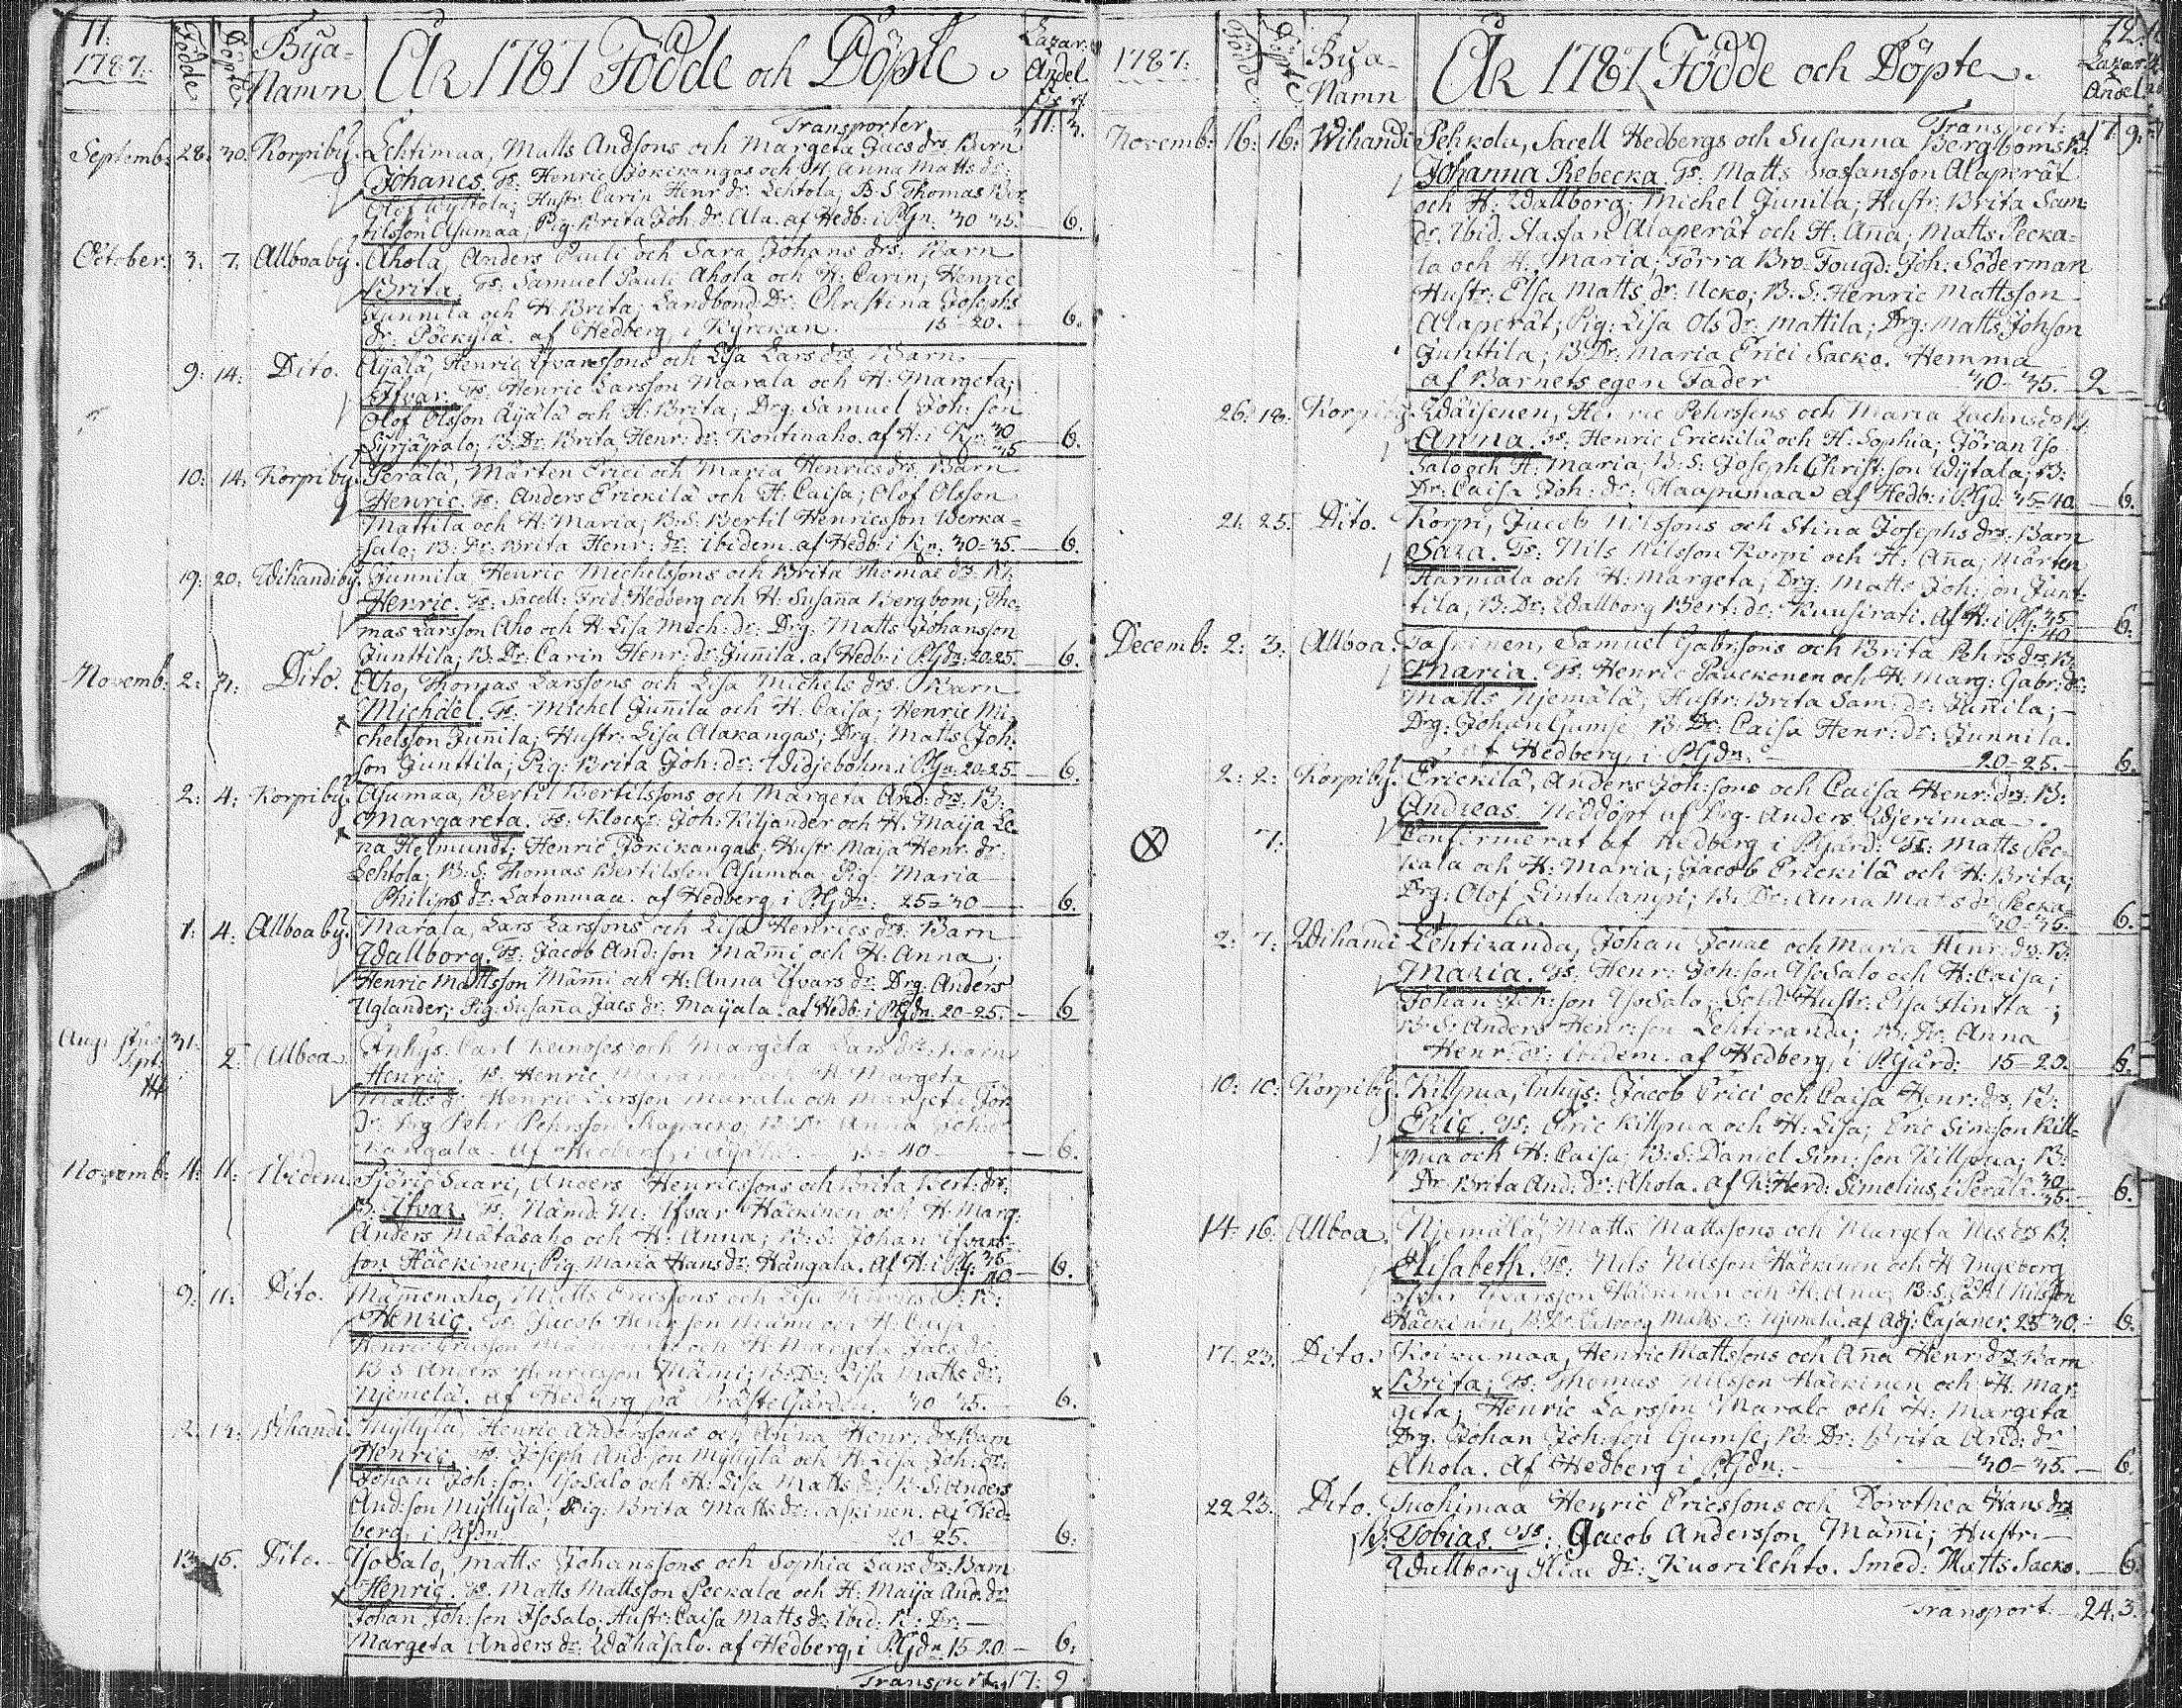 11.
1787.
Födde
Döpte
Bya-
Namn
År 1787 Födde och Döpte.
Lazar.
Andel.
Transporter 11: 3.
Septemb: 28: 30: Korpiby. Lehtimaa, Matts Andsons och Margeta Jacs drs Barn
Johanes. Ts: Henric Jokikangas och H. Anna Matts dr;
Olof Wyttola; Hustr. Carin Henr dr Lehtola; B. S Thomas Ber-
tilsson Asumaa; Pig. Brita Joh. dr. Ala. af Hedb: i PGn: 30 35. 6.
October: 3: 7: Allboaby. Ahola Anders Pauli och Sara Johans drs: Barn
Brita. Ts: Samuel Pauli Ahola och H: Carin; Henric
Junnila och H. Brita; Landbond: Dr: Christina Josephs
dr. Pöckylä. af Hedberg i Kyrckan. 15-20. 6.
9: 14: Dito. Äijälä, Henric Ifvarssons och Lisa Lars drs Barn
Ifvar. Ts. Henric Larsson Marala och H: Margeta;
Olof Olsson Äijälä och H. Brita; Drg: Samuel Joh: son
Syrjäpalo; B: Dr: Brita Henr: dr: Kontinaho. af H: i Kjr. 30 35 6.
10: 14: Korpiby. Perälä, Mårten Erici och Maria Henrics drs. Barn
Henric. Ts: Anders Erickilä och H. Caisa; Olof Olsson
Mattila och H: Maria; B: S: Bertil Henricsson Werka-
salo; B: Dr: Brita Henr: dr: ibidem. af Hedb: i Kjn: 30-35. 6.
19: 20: Wihandiby. Junnila Henric Michelssons och Brita Thomae dr B:
Henric. Ts: Sacell: Frid: Hedberg och H: Susanna Bergbom; Tho-
mas Larsson Aho och H Lisa Mich: dr: Drg: Matts Johansson
Junttila; B: Dr: Carin Henr: dr: Junnila. af Hedb: i PGdn: 20-25. 6.
Novemb: 2: 4: Dito. Aho, Thomas Larssons och Lisa Michels drs. Barn
Michaël. Ts: Michel Junnila och H: Caisa; Henric Mi-
chelsson Junnila; Hustr: Lisa Alakangas; Drg: Matts Joh:
son Junttila; Pig: Brita Joh: dr: Widjeböhm. i PGn: 20-25 6.
2: 4: Korpiby. Asumaa, Bertil Bertilssons och Margeta And: drs: B:
Margareta. Ts: Klock: Joh: Kiljander och H. Maija Le-
na Helmundt; Henric Jokikangas; Hustr Maija Henr: dr:
Lehtola; B: S: Thomas Bertilsson Asumaa; Pig: Maria
Philips dr: Latomaa. af Hedberg i PGdn: 25-30 6.
1: 4: Allboaby. Marala, Lars Larssons och Lisa Henrics drs: Barn
Wallborg. Ts: Jacob And: son Mämi och H: Anna;
Henric Mattsson Mämi och H: Anna Ifvars dr: Drg. Anders
Uglander; Pig: Susanna Jacs dr: Maijala. af Hedb: i PGdn 20-25. 6
Augustus 31. Spt: 2. Allboa. Inhys. Carl och Margeta Lars drs: Barn
Henric. Ts. Henric och H Margeta
Matts dr Henric Larsson Marala och Margeta Joh
dr: Drg Pehr Pehrsson B: Dr Anna Joh: dr
Kangala. af Hedberg i Äijälä 40 6.
Novemb: 4: 11: Ibidem. Anders Henricssons och Brita Bert: drs:
B. Ifvar. Ts: Nämd: M: Ifvar Häckinen och H: Marg:
Anders Mätäsaho och H: Anna; B: S: Johan Ifvars-
son Häckinen; Pig. Maria Hans dr: Kangala. af H: i PG: 35 40 6.
9: 11: Dito. Mämenaho, Matts Ericssons och Lisa B:
Henric. Ts: Jacob Henr: son Mämi och H: Caisa
Henric Ericsson och H Margeta Jacs dr:
B S Anders Henricsson Mämi; B: Dr: Lisa Matts dr:
Njemelä. af Hedberg på PrästeGården. 30 35. 6.
12. Wihandi. Myllylä, Henric Anderssons och Anna Henr: drs Barn
Henric. Ts. Joseph And: son Myllylä och H: Lisa Joh: dr:
Johan Joh: son Isosalo och H: Lisa Matts dr; B: S: Anders
And: son Myllylä; Pig: Brita Matts dr: af Hed-
berg, i PGdn 20 25. 6.
13: 15. Dito. Isosalo, Matts Johanssons och Sophia Lars drs: Barn
Henric. Ts. Matts Mattsson Peckala och H: Maija And: dr
Johan Joh: son Isosalo; Hustr: Caisa Matts dr: Ibid: B: Dr:
Margeta Anders dr: Wähäsalo. af Hedberg, i PGdn 15-20 6:
Transport 17: 9
1787.
Födde
Döpte
Bya-
Namn
År 1787 Födde och Döpte.
12.
Lazar.
Andel.
Transport: 17: 9.
Novemb: 16: 16: Wihandi Pehkola, Sacell Hedbergs och Susanna Bergboms B:
Johanna Rebecka Ts: Matts Staffansson Alaperät
och H: Wallborg; Michel Junila; Hustr: Brita Sam:
dr. Ibid. Staffan Alaperät och H: Anna; Matts Pecka-
la och H: Maria; Förra Bro-Fougd: Joh: Söderman
Hustr: Elsa Matts dr: Ucko; B. S: Henric Mattsson
Alaperät; Pig: Lisa Ols dr: Mattila; Drg: Matts Johson
Junttila; B: Dr: Maria Erici Sacko. Hemma
af Barnets egen Fader 30-35. 2
26: 18: Korpiby. Wäisenen, Henric Pehrssons och Maria Zachris drs B:
Anna. Ts: Henric Erickilä och H: Sophia; Göran Iso
Salo och H: Maria; B: S: Joseph Christ: son Wijtala; B:
Dr: Caisa Joh: dr: Haapamaa af Hedb: i PGd: 35-40. 6.
21: 25. Dito. Korpi, Jacob Nilssons och Stina Josephs drs: Barn
Sara. Ts: Nils Nilsson Korpi och H: Anna; Mårten
Harmala och H: Margeta; Drg: Matts Joh: son Junt-
tila, B: Dr: Wallborg Bert: dr: Kuusirati. Af H: i PG: 35 40 6.
Decemb: 2: 3: Allboa. Taskinen, Samuel Gabrssons och Brita Pehrs drs B:
Maria. Ts: Henric Paackonen och H. Marg: Gabr: dr:
Matts Njemälä; Hustr: Brita Sam: dr: Junila;
Drg: Johan Gumse B: Dr: Caisa Henr: dr: Junnila.
af Hedberg, i PGdn. 20-25. 6.
2: 2: Korpiby. Erickilä, Anders Joh: sons och Caisa Henr: drs: B:
Andreas. Nöddöpt af Drg. Anders Wjerimaa.
7: Confirmerat af Hedberg i PGård: Ts: Matts Pec-
kala och H: Maria; Jacob Erickilä och H: Brita;
Drg: Olof Lintulampi; B: Dr: Anna Mats dr Pecka-
la. 30-35. 6.
2: 7: Wihandi Lehtiranda, Johan Jonae och Maria Henr: drs: B:
Maria. Ts: Henr: Joh: son Isosalo och H: Caisa;
Johan Joh: son Isosalo; Sold: Hustr: Elsa Hintta;
B: S: Anders Henr: son Lehtiranda; B: Dr: Anna
Henr: dr: ibidem. af Hedberg, i PGård: 15-20. 6.
10: 10: Korpiby. Killpua, Inhys: Jacob Erici och Caisa Henr: drs: B:
Eric. Ts: Eric Killpua och H: Lisa; Eric Simsson Kill-
pua och H: Caisa; B: S: Daniel Sim: son Killpua; B:
Dr Brita And: dr: Ahola. af K: Herd: Simelius, i Perälä. 30 35. 6.
14: 16: Allboa. Njemälä, Matts Mattssons och Margeta Nils drs B:
Elisabeth. Ts: Nils Nilsson Häckinen och H Ingeborg
Ifvar Ifvarsson Häckinen och H: Anna; B: S: Carl Nilsson
Häckinen, B: Dr: Matts dr: Njemelä. af Adj: Cajaner. 25-30. 6.
17. 23: Dito. Koivumaa, Henric Mattssons och Anna Henr: drs Barn
Brita; Ts: Thomas Nilsson Häckinen och H: Mar-
geta; Henric Larsson Marala och H: Margeta
Drg. Johan Joh: son Gumse; B: Dr: Brita And: dr
Ahola. Af Hedberg i PGdn. 30-35. 6.
22 23. Dito. Suohimaa Henric Ericssons och Dorothea Hans drs
B: Tobias. Ts: Jacob Andersson Mämi; Hustr:
Wallborg Eliae dr: Kuorilehto. Smed: Matts Sacko. 6.
Transport. 24: 3.